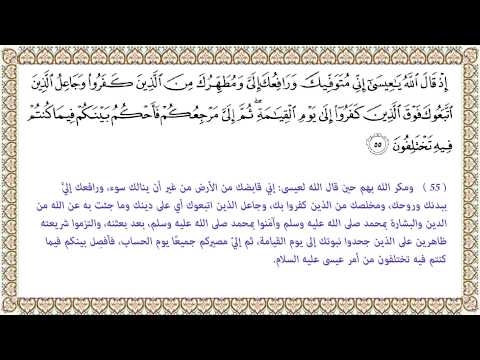 إِذْ قَالَ اللَّهُ يَا عِيسَىٰ إِنِّي مُتَوَفِّيكَ وَرَافِعُكَ إِلَيَّ وَمُطَهِّرُكَ مِنَ الَّذِينَ كَفَرُوا وَجَاعِلُ الَّذِينَ
اتَّبَعُوكَ فَوْقَ الَّذِينَ كَفَرُوا إِلَىٰ يَوْمِ الْقِيَامَةِ ۖ ثُمَّ إِلَيَّ مَرْجِعُكُمْ فَأَحْكُمُ بَيْنَكُمْ فِيمَا كُنتُمْ
فِيهِ تَخْتَلِفُونَ ٥٥
( 55 ) ومكر الله بهم حين قال الله لعيسى: إني قابضك من الأرض من غير أن ينالك سوء، ورافعك إليَّ
ببدنك وروحك، ومخلصك من الذين كفروا بك، وجاعل الذين اتبعوك أي على دينك وما جئت به عن الله من
الدين والبشارة بمحمد صلى الله عليه وسلم وآمَنوا بمحمد صلى الله عليه وسلم، بعد بعثته، والتزموا شريعته
ظاهرين على الذين جحدوا نبوتك إلى يوم القيامة، ثم إليّ مصيركم جميعًا يوم الحساب، فأفصِل بينكم فيما
كنتم فيه تختلفون من أمر عيسى عليه السلام.